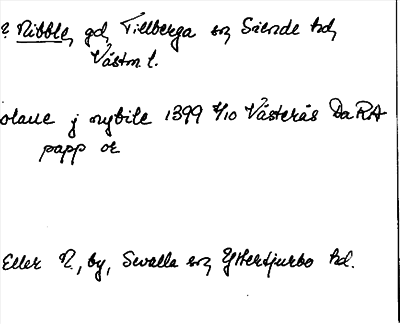 ? Nibble, gd, Tillberga sn, Siende hd,
Västm l.
olaue j nybile 1399 4/10 Västerås DaRA
papp or
Eller N., by, Sevalla sn, Yttertjurbo hd.